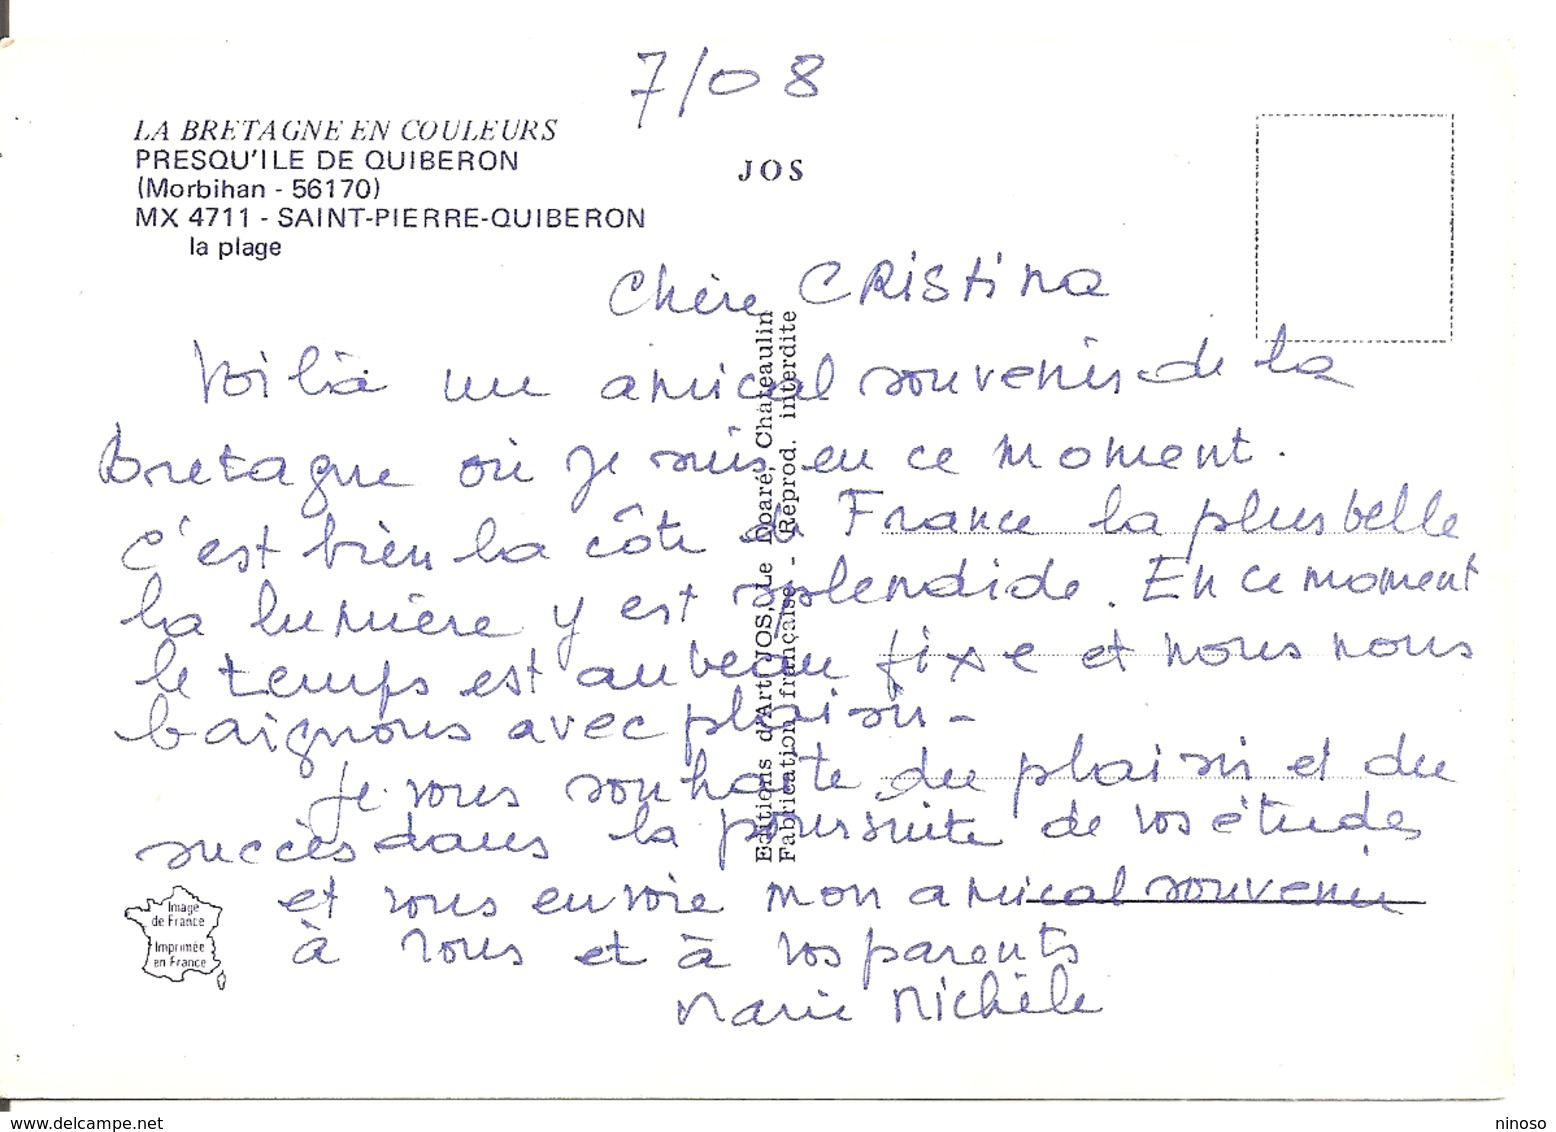 7/08
LA BRETAGNE EN COULEURS
PRESQU'ILE DE QUIBERON
(Morbihan - 56170)
MX 4711 - SAINT-PIERRE-QUIBERON
la plage
JOS
Chère CRistina
Voilà un amical souvenir de la
Bretagne où je suis en ce moment.
C'est bien la côte de France la plus belle
la lumière y est splendide. En ce moment
le temps est au beau fixe et nous nous
baignons avec plaisir -
Je vous souhaite du plaisir et du
succès dans la poursuite de vos études
et vous envoie mon amical souvenir
à vous et à vos parents
Marie Michèle
Editions d'Art JOS, Le Doaré, Chateaulin
Fabrication française - Reprod. interdite
Image
de France
Imprimée
en France
www.delcampe.net
ninoso